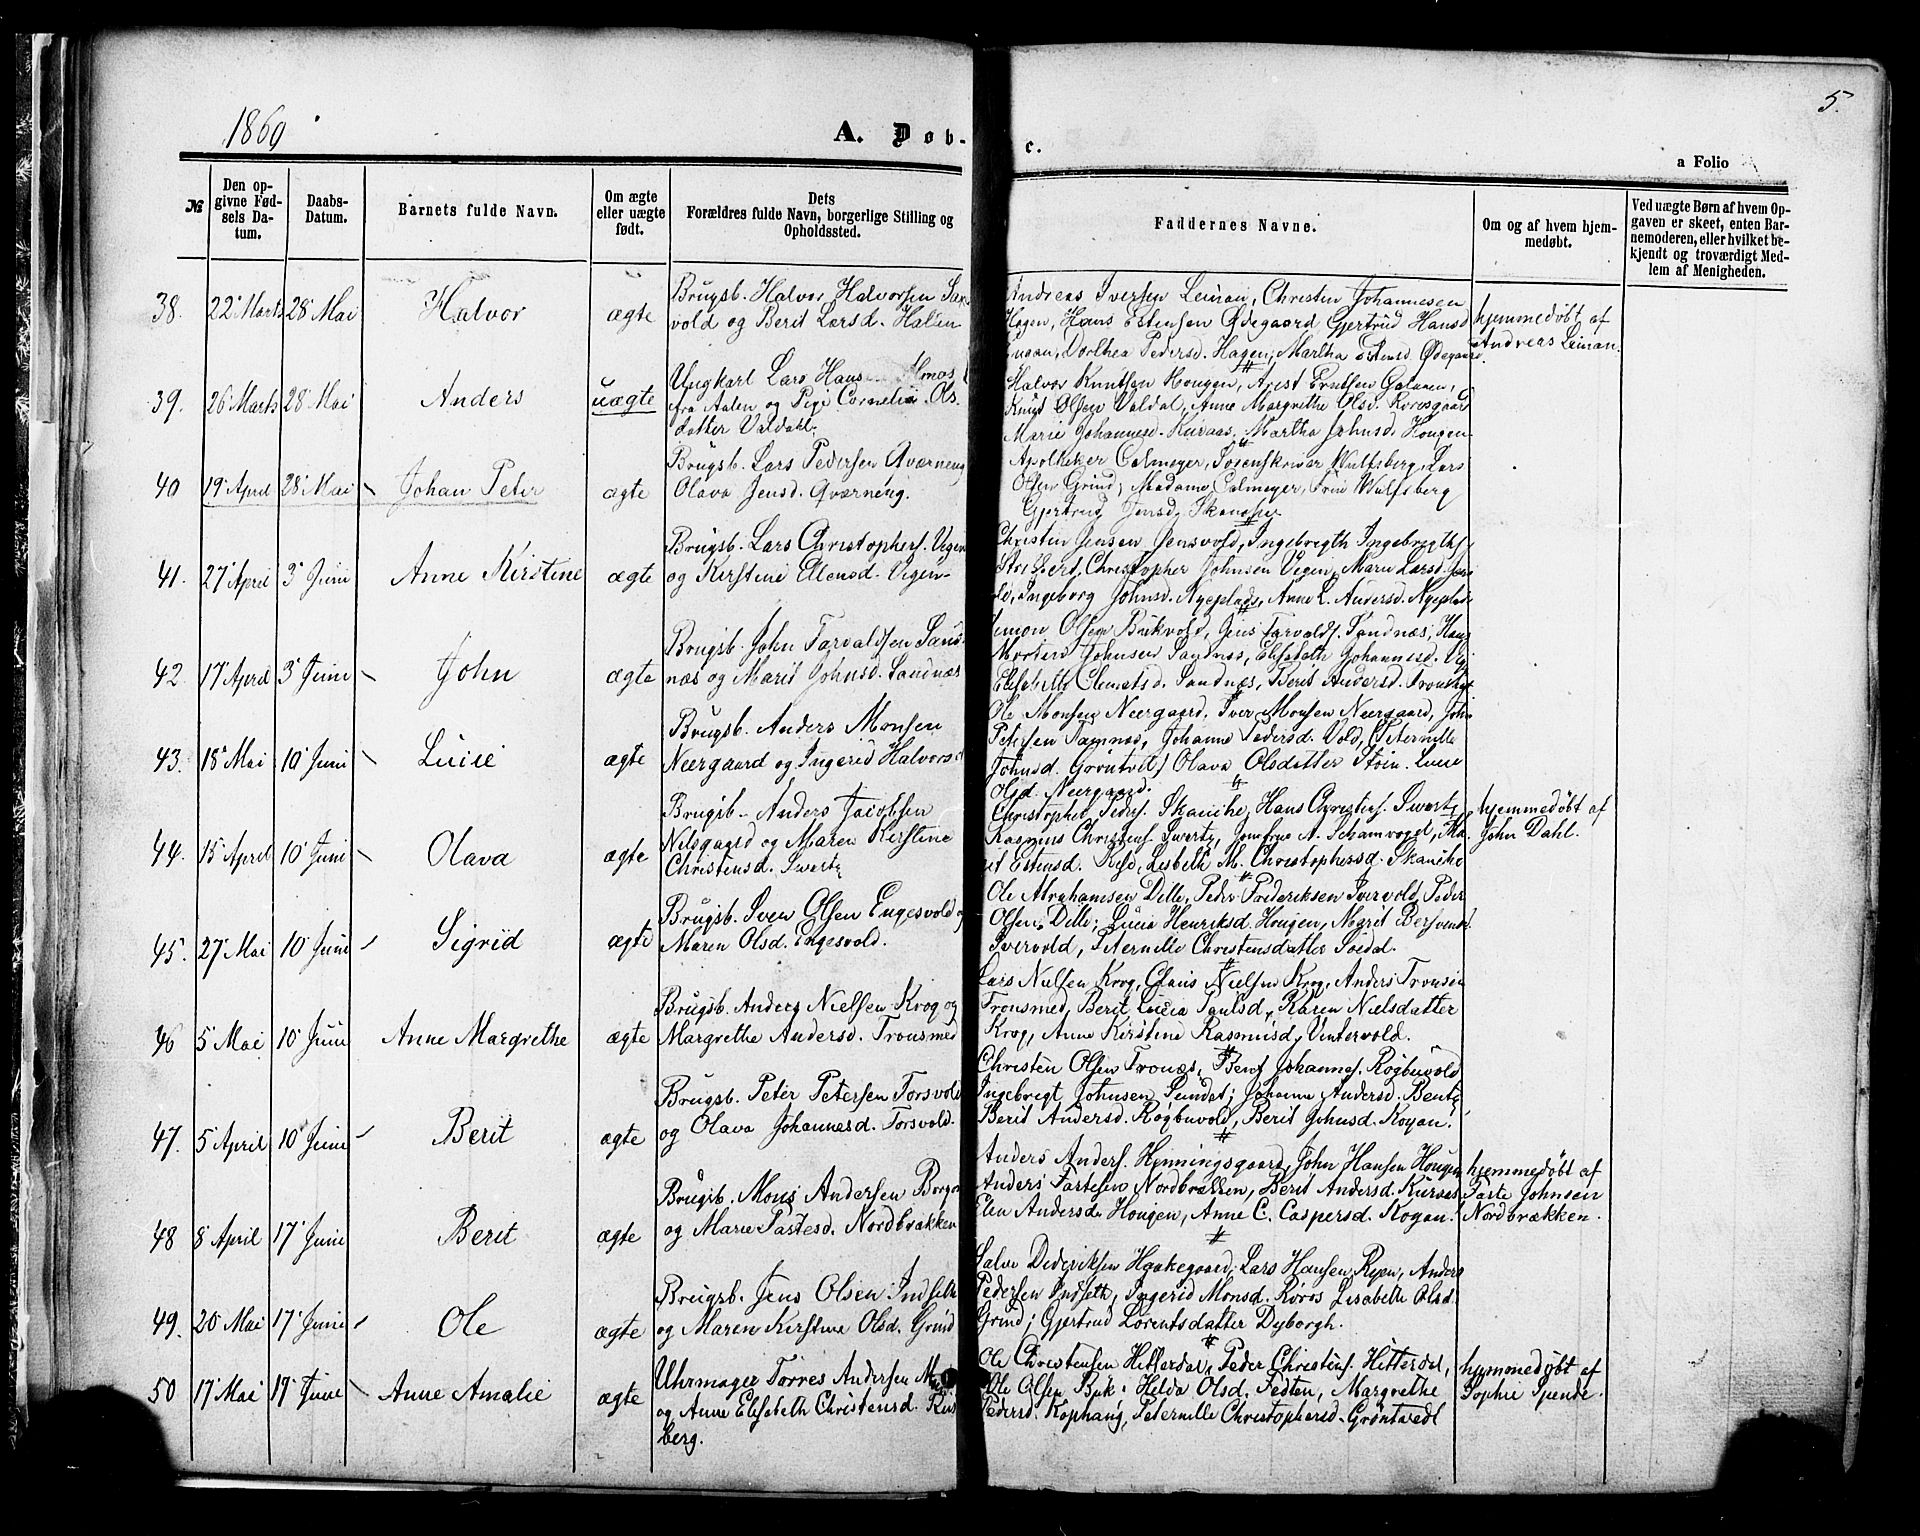 1860
A. Døb-
c.
5.
a Folio
№
Den op-
givne Fød-
sels Da-
tum.
Daabs-
Datum.
Barnets fulde Navn.
Om ægte
eller uægte
født.
Dets
Forældres fulde Navn, borgerlige Stilling og
Opholdssted.
Faddernes Navne.
Om og af hvem hjem-
medøbt.
Ved uægte Børn af hvem Op-
gaven er skeet, enten Bar-
nemoderen, eller hvilket be-
kjendt og troværdigt Med-
lem af Menigheden.
38. 22 Marts 28 Mai Halvor ægte
Brugsb. Halvor Halvorsen
vold og Berit Larsd. Halsen
Andreas Iversen Leinan, Christen Johannesen
Hagen, Hans Estensen Ødegaard, Gjertrud Hansd
Dorthea Pedersd. Hagen, Martha Estensd. Ødegaard
hjemmedøbt af
Andreas Leinan.
39. 26 Marts 28 Mai Anders uægte
Ungkarl Lars Hansen
fra Aalen og Pige Cornelia Ols-
datter Valdahl.
Halvor Knutsen Hougen,
Knud Olsen Valdal, Anne Margrethe Olsd.
Marie Johannesd. Kuraas, Martha Johnsd. Hougen
40 19 April 28 Mai Johan Peter ægte
Brugsb. Lars Pedersen Qværneng
Olava Jensd. Qværneng.
Apotheker Calmeyer, Sorenskriver Wulfsberg, Lars
Olsen Grind, Madame Calmeyer, Frue Wulfsberg
Gjertrud Jensd.
41. 27 April 3 Juni Anne Kirstine ægte
Brugsb. Lars Christophers. Vigen
og Kirstine Ellensd. Vigen
Christen Jensen Jensvold, Ingebrigth Ingebrigths.
Christopher Johnsen Vigen, Marie Larsd.
Ingeborg Johnsd. Nyeplads, Anne L. Andersd. Nyeplads
42. 17 April 3 Juni John ægte
Brugsb. John Tarvaldsen Sand-
næs og Marit Johnsd. Sandnæs
Simon Olsen Bukvold, Jens Tarvalds. Sandnæs,
Morten Johnsen Sandnæs, Elisabeth Johannesd.
Elisabeth Clemetsd. Sandnæs, Berit Andersd.
43. 18 Mai 10 Juni Lucie ægte
Brugsb. Anders Monsen
Neergaard og Ingerid Halvorsd
Ole Monsen Neergaard, Iver Monsen Neergaard, John
Petersen Tamnæs, Johanne Pedersd. Vold, Peternille
Johnsd. Olava Olsdatter Stoen. Lucie
Olsd. Neergaard.
44. 15 April 10 Juni Olava ægte
Brugsb. Anders Jacobsen
Nilsgaard og Maren Kirstine
Christensd. Swertz
Christopher Peders. Skancke, Hans Christens. Swertz,
Rasmus Christens. Swertz, Jomfrue A. Schamvogel,
Estensd. Lisbeth M. Christophersd. Skancke
hjemmedøbt af
John Dahl.
45. 27 Mai 10 Juni Sigrid ægte
Brugsb. Sven Olsen Engesvold og
Maren Olsd. Engesvold.
Ole Abrahamsen Dille, Peder Frederiksen Svervold, Peder
Olsen Dille, Lucia Henriksd. Hougen, Marit
Svervold, Peternille Christensdatter
46 5 Mai 10 Juni Anne Margrethe ægte
Brugsb. Anders Nielsen Krog og
Margrethe Andersd. Tronsmed
Lars Nielsen Krog, Claus Nielsen Krog, Anders Tronsen
Tronsmed, Berit Lucia Paulsd., Karen Nielsdatter
Krog, Anne Kirstine Rasmusd. Vintervold.
47. 5 April 10 Juni Berit ægte
Brugsb. Peter Petersen Torsvold
og Olava Johannesd. Torsvold.
Christen Olsen Tronæs, Bent Johannes. Røgbuvold
Ingebrigt Johnsen Sundet; Johanne Andersd. Bentz
Berit Andersd. Røgbuvold, Berit Johnsd. Kojan.
48 8 April 17 Juni Berit ægte
Brugsb. Mons Andersen Borgos
og Marie Tartesd. Nordbrækken
Anders Anders. Henningsgaard, John Hansen Hougen
Anders Tartesen Nordbrækken, Berit Andersd. Kuraas
Elen Andersd. Hougen, Anne C. Caspersd. Kojan.
hjemmedøbt af
Tarte Johnsen
Nordbrækken.
49. 20 Mai 17 Juni Ole ægte
Brugsb. Jens Olsen Indseth
og Maren Kirstine Olsd. Grind
Salve Dideriksen Haakegaard, Lars Hansen Ryen, Anders
Pedersen Indseth, Ingerid Monsd. Røros Lisabeth Olsd.
Grind; Gjertrud Lorentsdatter Dyborgh.
50 17 Mai 17 Juni Anne Amalie ægte
Uhrmager Torres Andersen
og Anne Elisabeth Christensd.
berg.
Ole Christensen Hitterdal, Peder Christens. Hitterdal,
Ole Olsen Buk, Helda Olsd. Fedten, Margrethe
Pedersd. Kophaug, Peternille Christophersd. Grøntvedt
hjemmedøbt af
Sophie Sjende.